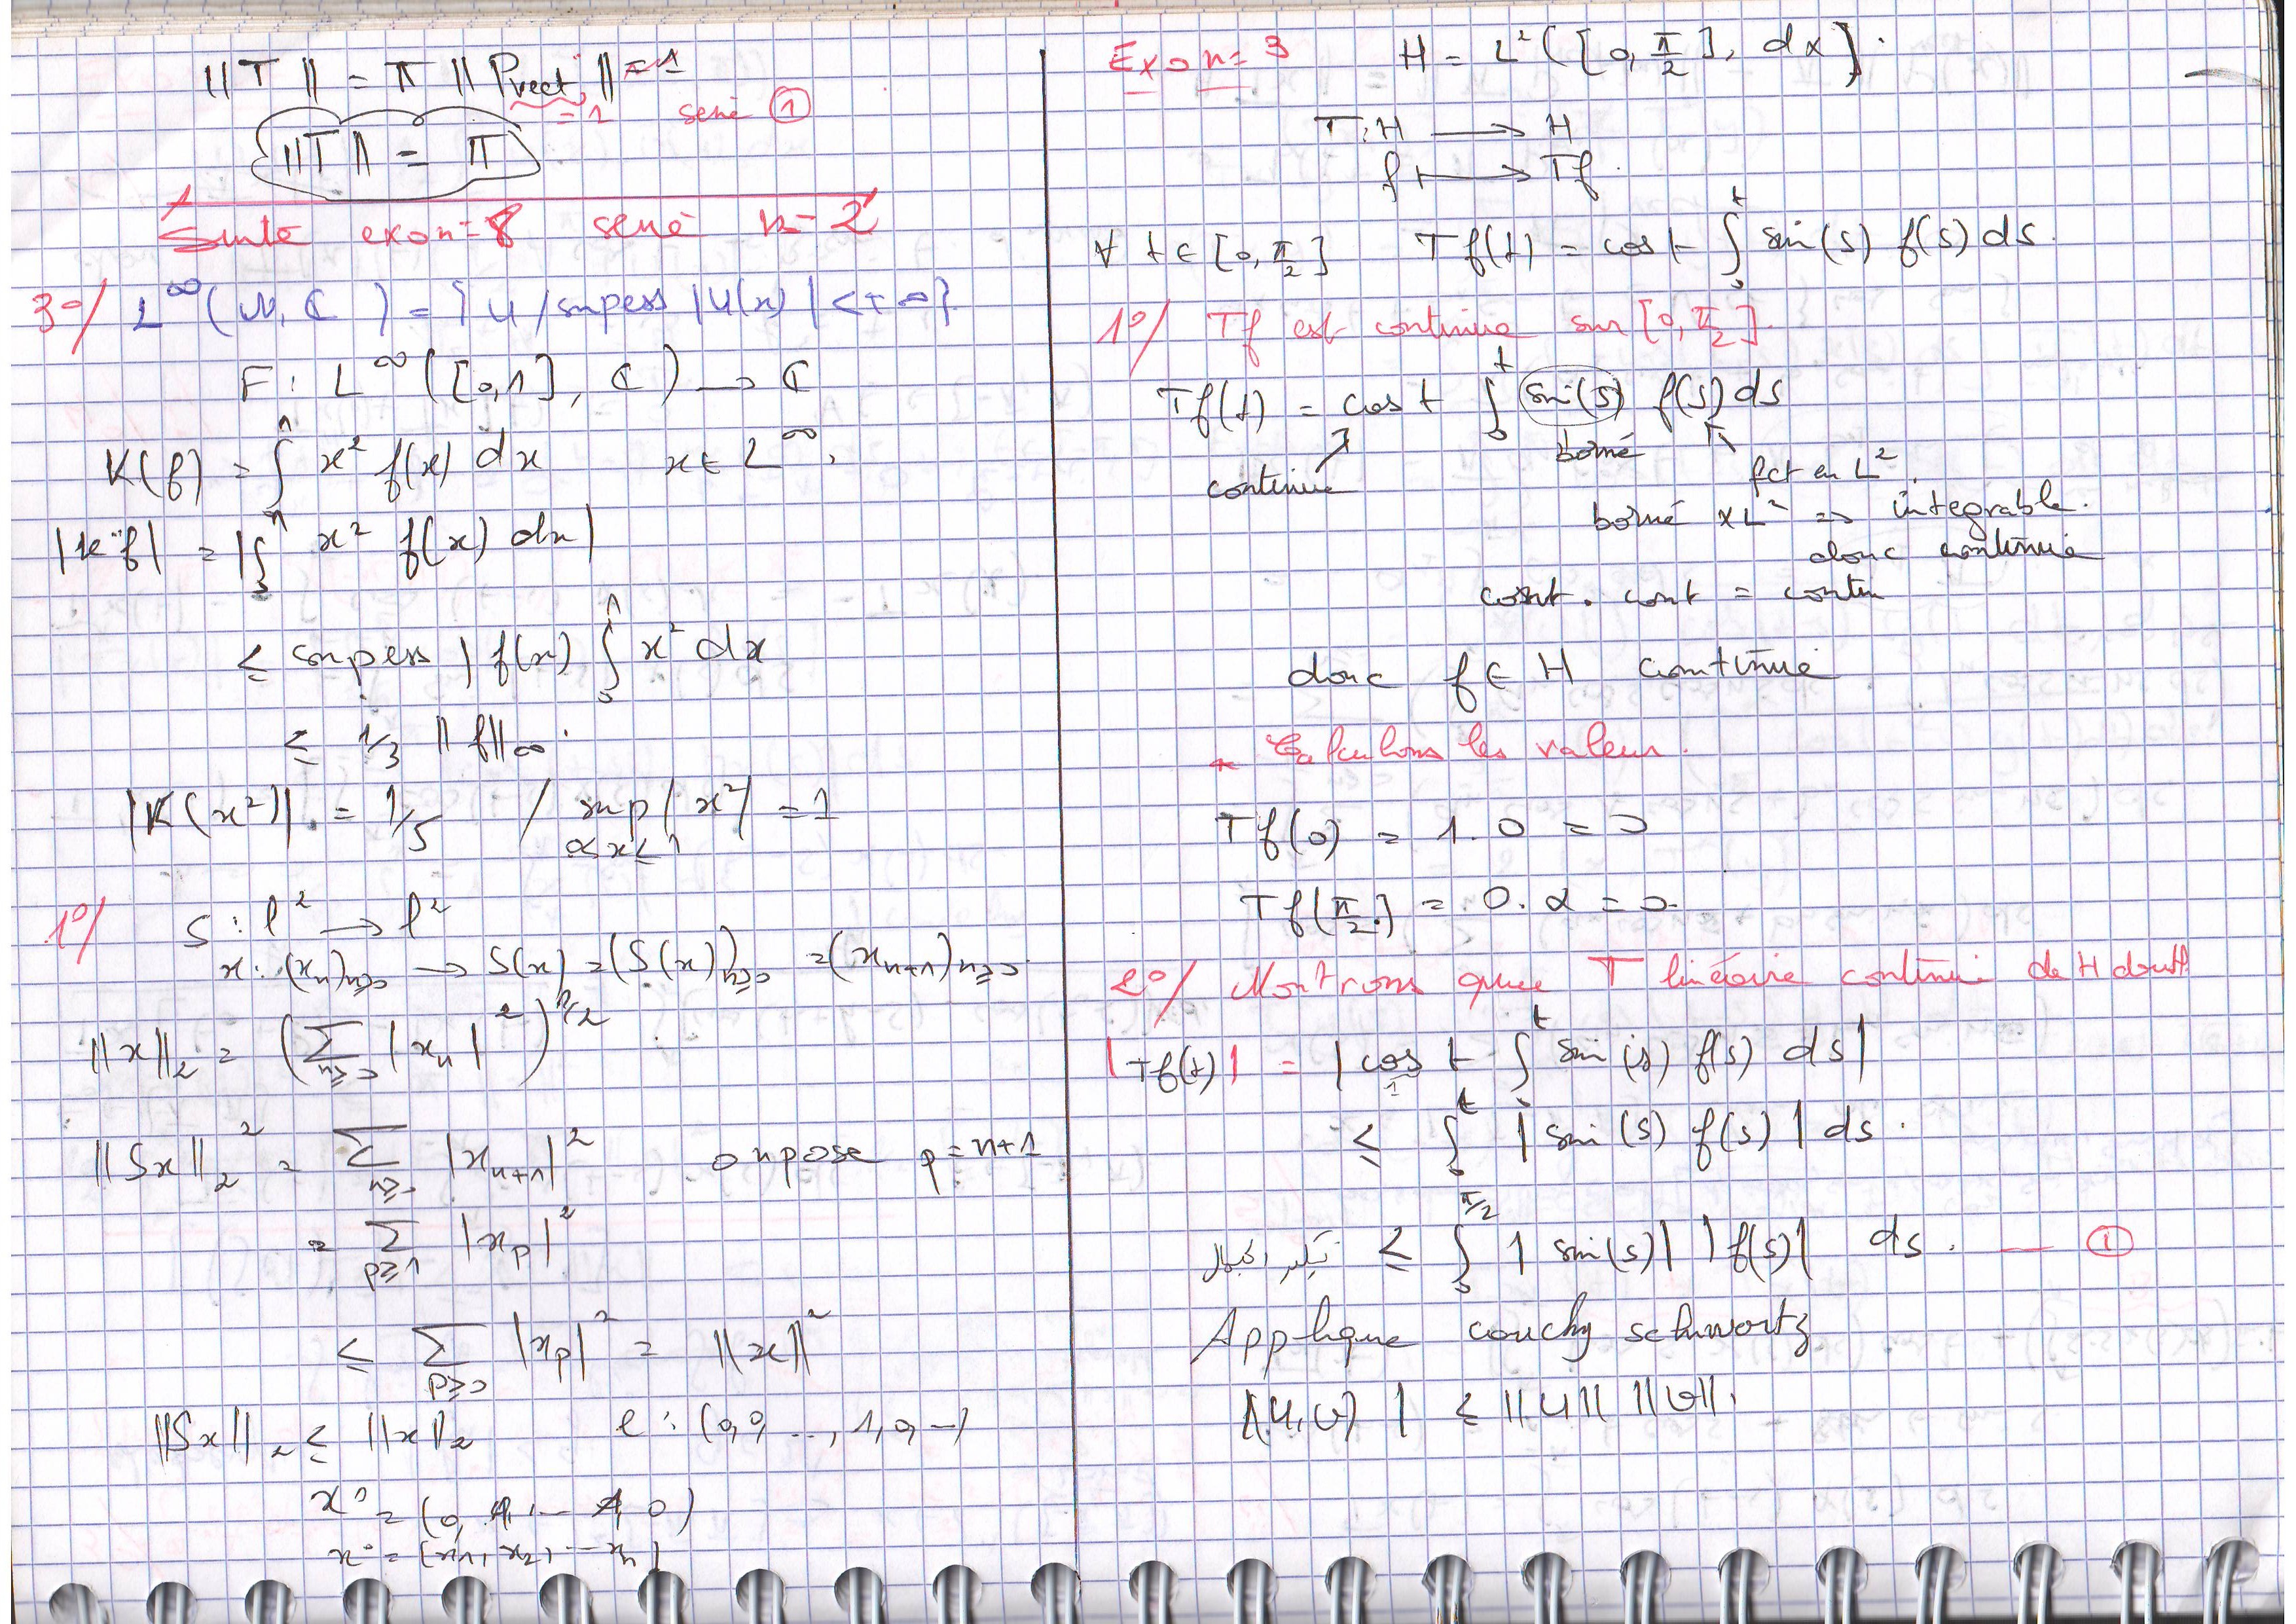 ||T|| = π ||Prect|| = 1
= 1 serie ①
||T|| = π
Suite exon=8 serie n=2
3°/ L^∞(N, C) = { U / supess |U(x)| < +∞ }
F : L^∞([0,1], C) → C
K(f) = ∫_0^1 x² f(x) dx x ∈ L^∞,
|K f| = |∫_0^1 x² f(x) dx|
≤ supess |f(x) ∫_0^1 x² dx
≤ 1/3 ||f||∞.
|K(x²)| = 1/5 / sup |x²| = 1
0≤x≤1
1°/ S : l² → l²
x : (xn)n≥0 → S(x) = (S(x))n≥0 = (xn+1)n≥0
||x||₂ = (∑_{n≥0} |xn|²)^{1/2}
||Sx||₂² = ∑_{n≥0} |xn+1|² on pose p = n+1
= ∑_{p≥1} |xp|²
≤ ∑_{p≥0} |xp|² = ||x||²
||Sx||₂ ≤ ||x||₂ e : (0, 0, ..., 1, 0, -)
= (0, 1, ... 1, 0)
= (x1, x2, ... xn)
Exon=3 H = L²([0, π/2], dx).
T : H → H
f ↦ Tf.
∀ t ∈ [0, π/2] Tf(t) = cos t ∫_0^t sin(s) f(s) ds.
1°/ Tf est continue sur [0, π/2].
Tf(t) = cos t ∫_0^t sin(s) f(s) ds
continue borné fct en L².
borné × L² ⇒ integrable.
donc continue
cont . cont = contin
donc f ∈ H continue
* Calculons les valeur.
Tf(0) = 1. 0 = 0
Tf(π/2) = 0. α = 0.
2°/ Montrons que T linéaire continue de H
|Tf(t)| = |cos t ∫_0^t sin(s) f(s) ds|
1
≤ ∫_0^t |sin(s) f(s)| ds.
≤ ∫_0^{π/2} |sin(s)| |f(s)| ds. — ①
Applique couchy schwortz
|(U, V)| ≤ ||U|| ||V||.